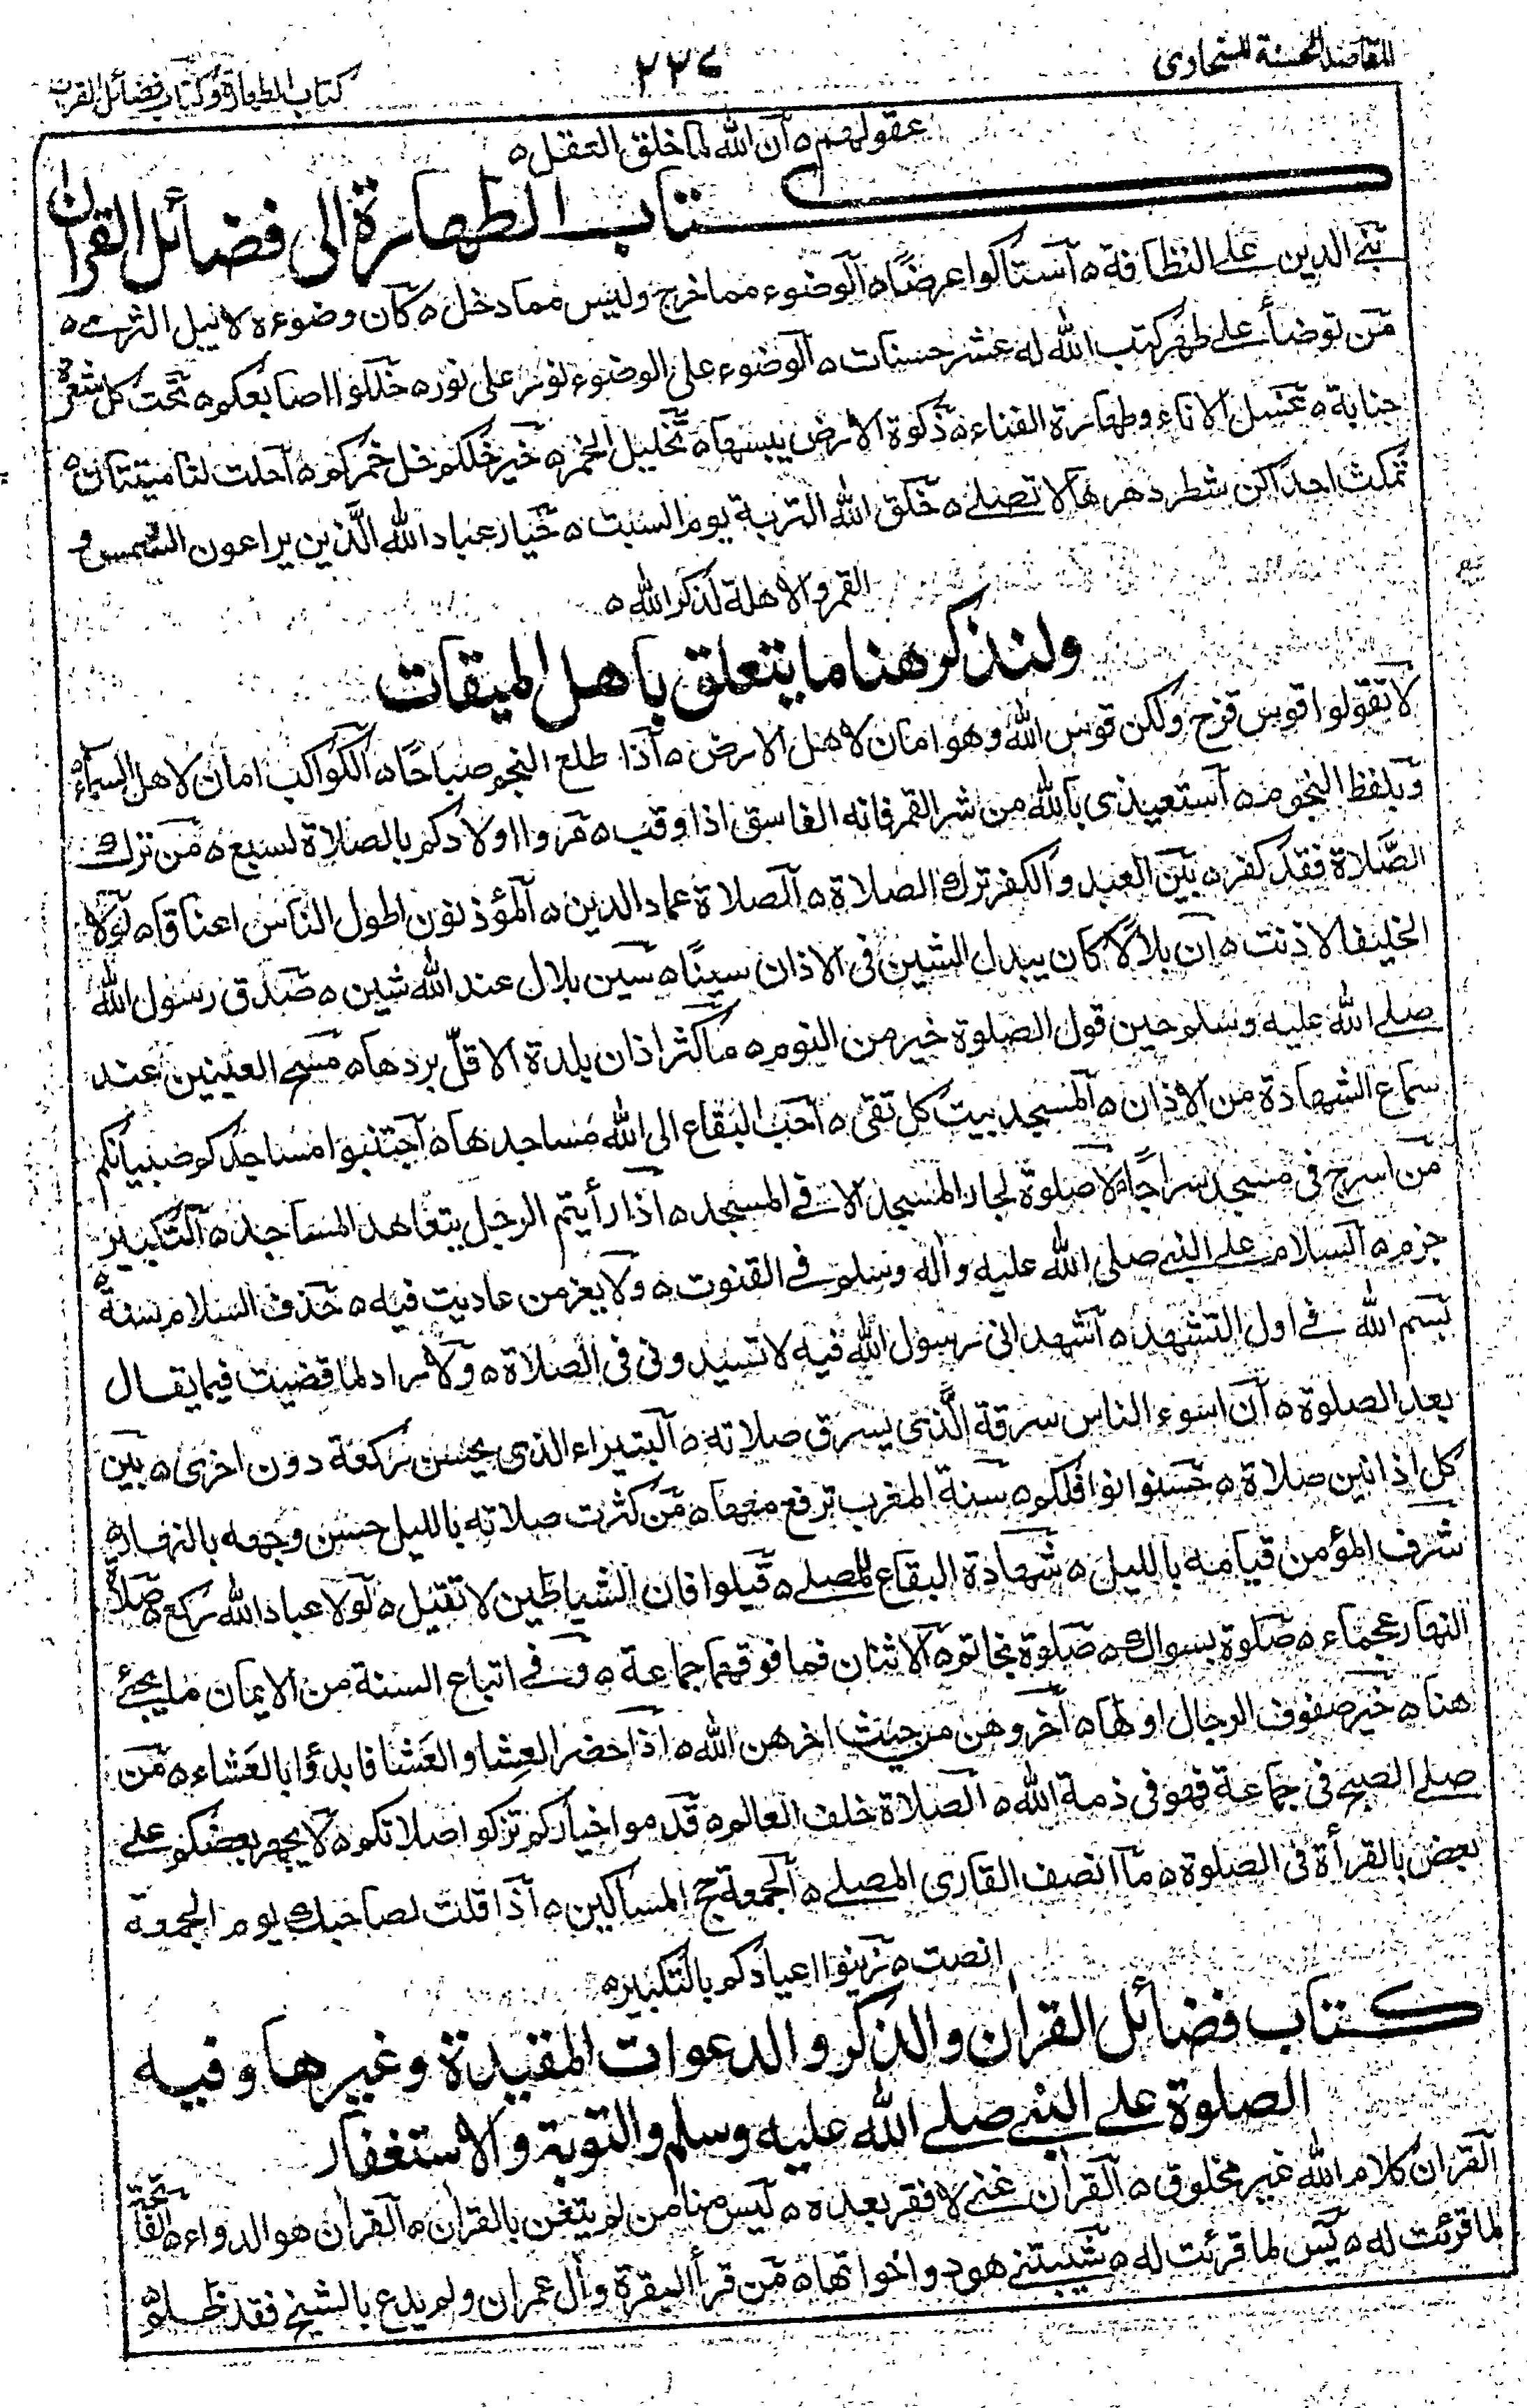 المقاصد الحسنة للسخاوى
٢٢٧
كتاب الطهارة وكتاب فضائل القران
عقولهم ه ان الله لما خلق العقل ه
كتاب الطهارة الى فضائل القران
بنى الدين على النظافة ه استاكوا عرضًا ه الوضوء مما خرج وليس مما دخل ه كان وضوءه لا يبل الثرى ه
من توضأ على طهر كتب الله له عشر حسنات ه الوضوء على الوضوء نور على نور ه خللوا اصابعكم ه تحت كل شعرة
جنابة ه غسل الاناء وطهارة الفناء ه ذكوة الارض يبسها ه تخليل الخمر ه خير خلكم خل خمركم ه احلت لنا ميتتان ه
تمكث احداكن شطر دهرها لا تصلى ه خلق الله التربة يوم السبت ه خيار عباد الله الَّذين يراعون الشمس و
القمر والاهلة لذكر الله ه
ولنذكر هنا ما يتعلق باهل الميقات
لا تقولوا قوس قزح ولكن قوس الله وهو امان لاهل الارض ه اذا طلع النجم صباحًا ه الكواكب امان لاهل السماء
وبلفظ النجوم ه استعيذى بالله من شر القمر فانه الغاسق اذا وقب ه مروا اولادكم بالصلاة لسبع ه من ترك
الصَّلاة فقد كفر ه بين العبد والكفر ترك الصلاة ه الصلاة عماد الدين ه المؤذنون اطول الناس اعناقا ه لولا
الخليفا لاذنت ه ان بلالًا كان يبدل الشين فى الاذان سينًا ه سين بلال عند الله شين ه صدق رسول الله
صلى الله عليه وسلم حين قول الصلوة خير من النوم ه ما كثر اذان بلدة الا قلّ بردها ه مسح العينين عند
سماع الشهادة من الاذان ه المسجد بيت كل تقى ه احب البقاع الى الله مساجدها ه اجتنبوا مساجدكم صبيانكم
من اسرج فى مسجد سراجًا ه لا صلوة لجار المسجد الا فى المسجد ه اذا رأيتم الرجل يتعاهد المساجد ه التكبير
جزم ه السلام على النبى صلى الله عليه واله وسلم فى القنوت ه ولا يعز من عاديت فيه ه حذف السلام سنة ه
بسم الله فى اول التشهد ه اشهد انى رسول الله فيه لا تسيدونى فى الصلاة ه ولا راد لما قضيت فيما يقال
بعد الصلوة ه ان اسوء الناس سرقة الَّذى يسرق صلاته ه البتيراء الذى يحسن ركعة دون اخرى ه بين
كل اذانين صلاة ه حسنوا نوافلكم ه سنة المغرب ترفع معها ه من كثرت صلاته بالليل حسن وجهه بالنهار ه
شرف المؤمن قيامه بالليل ه شهادة البقاع للمصلى ه قيلوا فان الشياطين لا تقيل ه لولا عباد الله ركع ه صلاة
النهار عجماء ه صلوة بسواك ه صلوة بخاتم ه الاثنان فما فوقهما جماعة ه وفى اتباع السنة من الايمان ما يجئ
هنا ه خير صفوف الرجال اولها ه اخروهن من حيث اخرهن الله ه اذا حضر العِشا والعَشا فابدؤا بالعَشاء ه من
صلى الصبح فى جماعة فهو فى ذمة الله ه الصلاة خلف العالم ه قدموا خياركم تزكوا صلاتكم ه لا يجهر بعضكم على
بعض بالقرأة فى الصلوة ه ما انصف القارى المصلى ه الجمعة حج المساكين ه اذا قلت لصاحبك يوم الجمعة
انصت ه زينوا اعيادكم بالتكبير ه
كتاب فضائل القران والذكر والدعوات المقيدة وغيرها وفيه
الصلوة على النبى صلى الله عليه وسلم والتوبة والاستغفار
القران كلام الله غير مخلوق ه القران غنى لا فقر بعده ه ليس منا من لم يتغن بالقران ه القران هو الدواء ه الفاتحة
لما قرئت له ه يس لما قرئت له ه شيبتنى هود واخواتها ه من قرأ البقرة وال عمران ولم يدع بالشيخ فقد ظلم